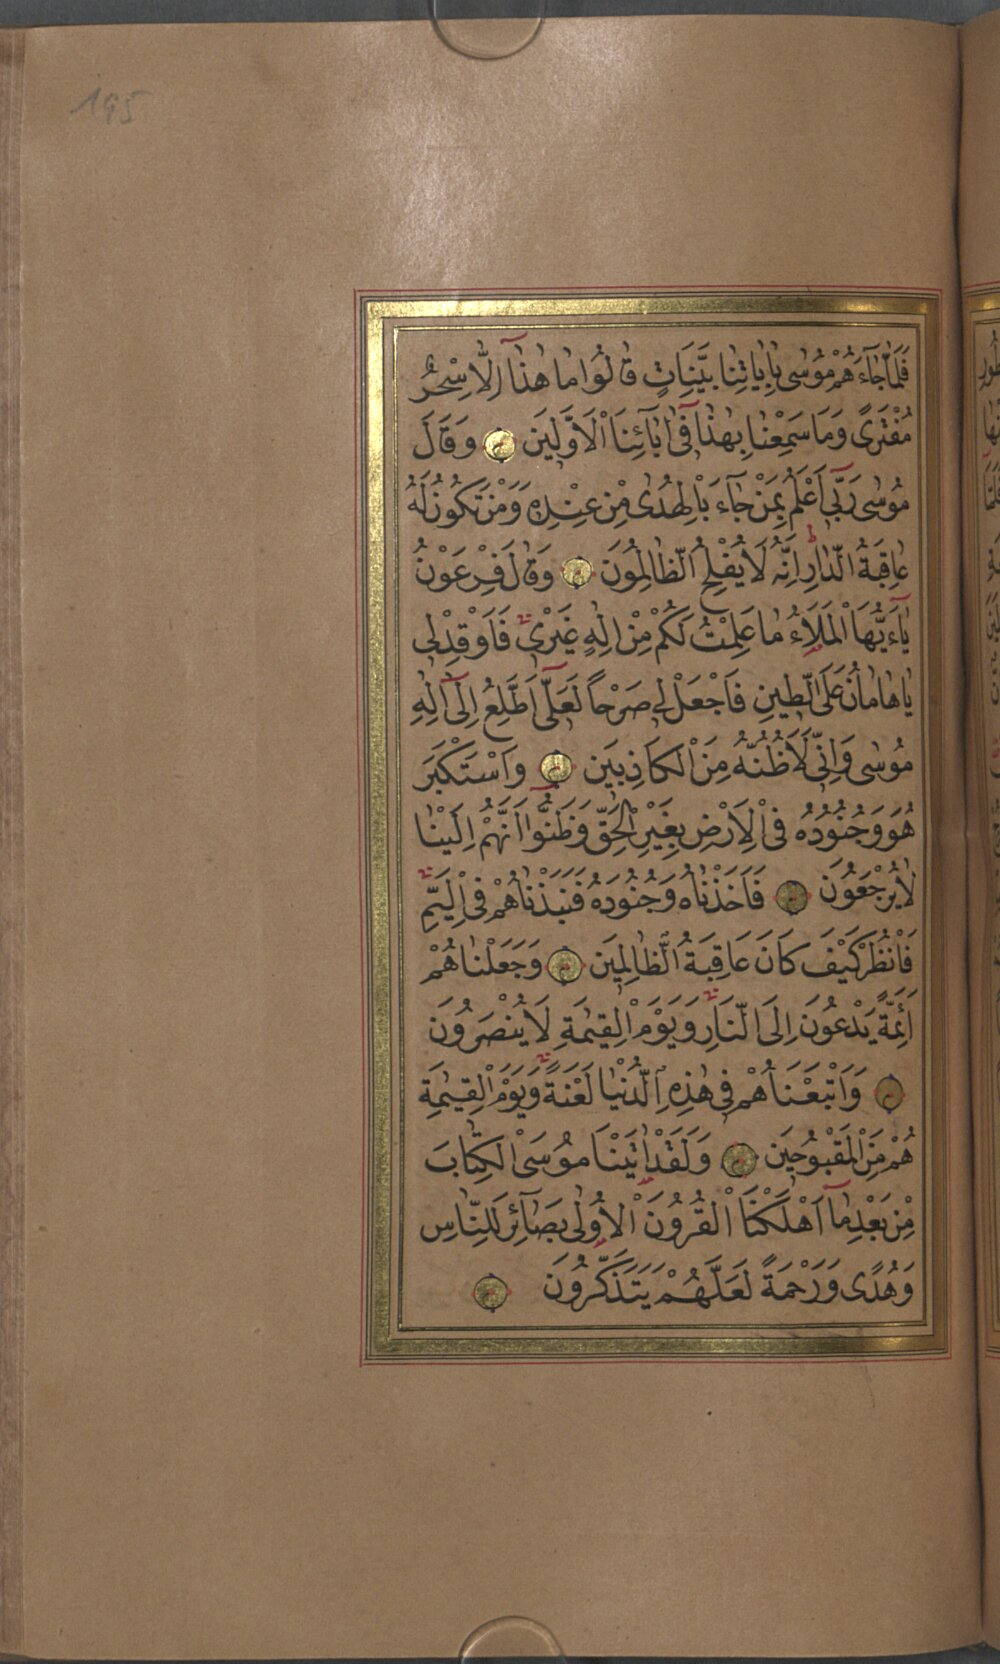 195
فَلَمَّا جَآءَهُمْ مُوسٰى بِاٰيَاتِنَا بَيِّنَاتٍ قَالُوا مَا هٰذَٓا اِلَّا سِحْرٌ
مُفْتَرًى وَمَا سَمِعْنَا بِهٰذَا فٓى اٰبَآئِنَا الْاَوَّلِينَ وَقَالَ
مُوسٰى رَبّٓى اَعْلَمُ بِمَنْ جَآءَ بِالْهُدٰى مِنْ عِنْدِهِ وَمَنْ تَكُونُ لَهُ
عَاقِبَةُ الدَّارِ اِنَّهُ لَا يُفْلِحُ الظَّالِمُونَ وَقَالَ فِرْعَوْنُ
يَآ اَيُّهَا الْمَلَاُ مَا عَلِمْتُ لَكُمْ مِنْ اِلٰهٍ غَيْرِى فَاَوْقِدْ لِى
يَا هَامَانُ عَلَى الطِّينِ فَاجْعَلْ لِى صَرْحًا لَعَلّٓى اَطَّلِعُ اِلٰٓى اِلٰهِ
مُوسٰى وَاِنِّى لَاَظُنُّهُ مِنَ الْكَاذِبِينَ وَاسْتَكْبَرَ
هُوَ وَجُنُودُهُ فِى الْاَرْضِ بِغَيْرِ الْحَقِّ وَظَنُّوٓا اَنَّهُمْ اِلَيْنَا
لَا يُرْجَعُونَ فَاَخَذْنَاهُ وَجُنُودَهُ فَنَبَذْنَاهُمْ فِى الْيَمِّ
فَانْظُرْ كَيْفَ كَانَ عَاقِبَةُ الظَّالِمِينَ وَجَعَلْنَاهُمْ
اَئِمَّةً يَدْعُونَ اِلَى النَّارِ وَيَوْمَ الْقِيٰمَةِ لَا يُنْصَرُونَ
وَاَتْبَعْنَاهُمْ فِى هٰذِهِ الدُّنْيَا لَعْنَةً وَيَوْمَ الْقِيٰمَةِ
هُمْ مِنَ الْمَقْبُوحِينَ وَلَقَدْ اٰتَيْنَا مُوسَى الْكِتَابَ
مِنْ بَعْدِ مَٓا اَهْلَكْنَا الْقُرُونَ الْاُولٰى بَصَآئِرَ لِلنَّاسِ
وَهُدًى وَرَحْمَةً لَعَلَّهُمْ يَتَذَكَّرُونَ